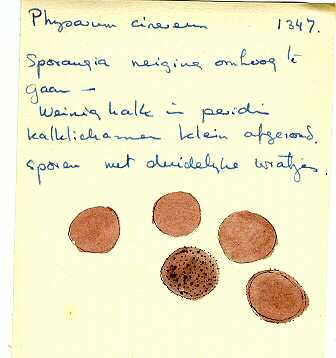 Physarum cinereum 1347.
Sporangia neiging omhoog te
gaan –
Weinig kalk in peridi
kalklichamen klein afgerond.
sporen met duidelijke wratjes.